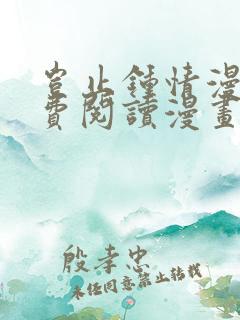 豈止鍾情漫
費閱讀漫畫
殷孝忠
未经同意禁止转载